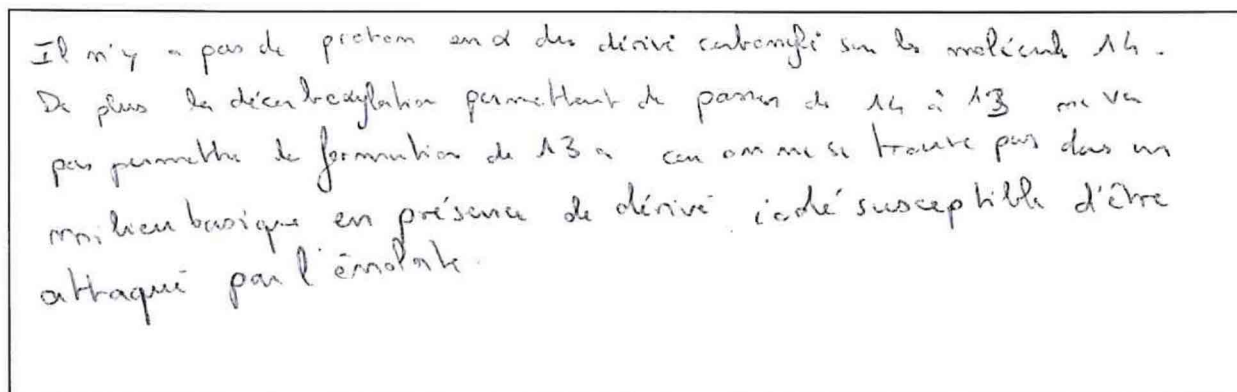 Il n'y a pas de proton en α des dérivé carbonylé sur la molécule 14.
De plus la décarboxylation permettant de passer de 14 à 13 ne va
pas permettre la formation de 13a car on ne se trouve pas dans un
milieu basique en présence de dérivé iodé susceptible d'être
attaqué par l'énolate.